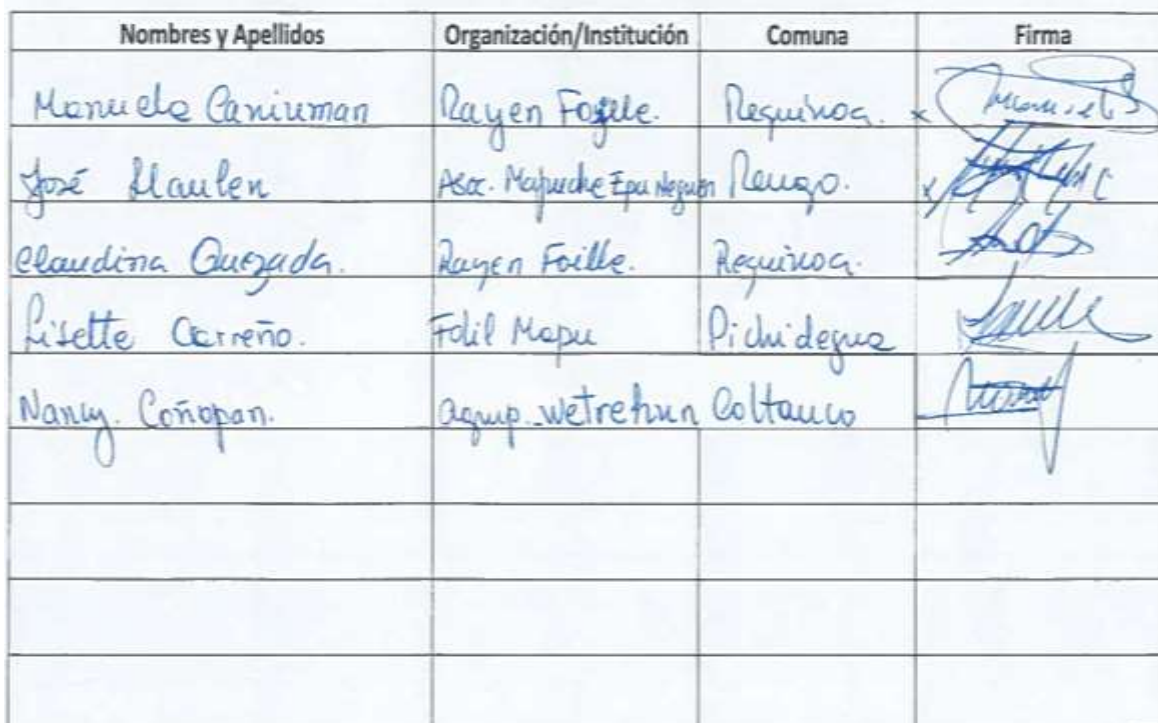 Nombres y Apellidos Organización/Institución Comuna Firma
Manuela Caniuman Rayen Foille. Requinoa. x
José Llaulen Asoc. Mapuche Epu Neguen Rengo. x
Claudina Quezada. Rayen Foille. Requinoa.
Lisette Carreño. Folil Mapu Pichidegua
Nancy. Coñopan. agrup. wetrehun Coltauco